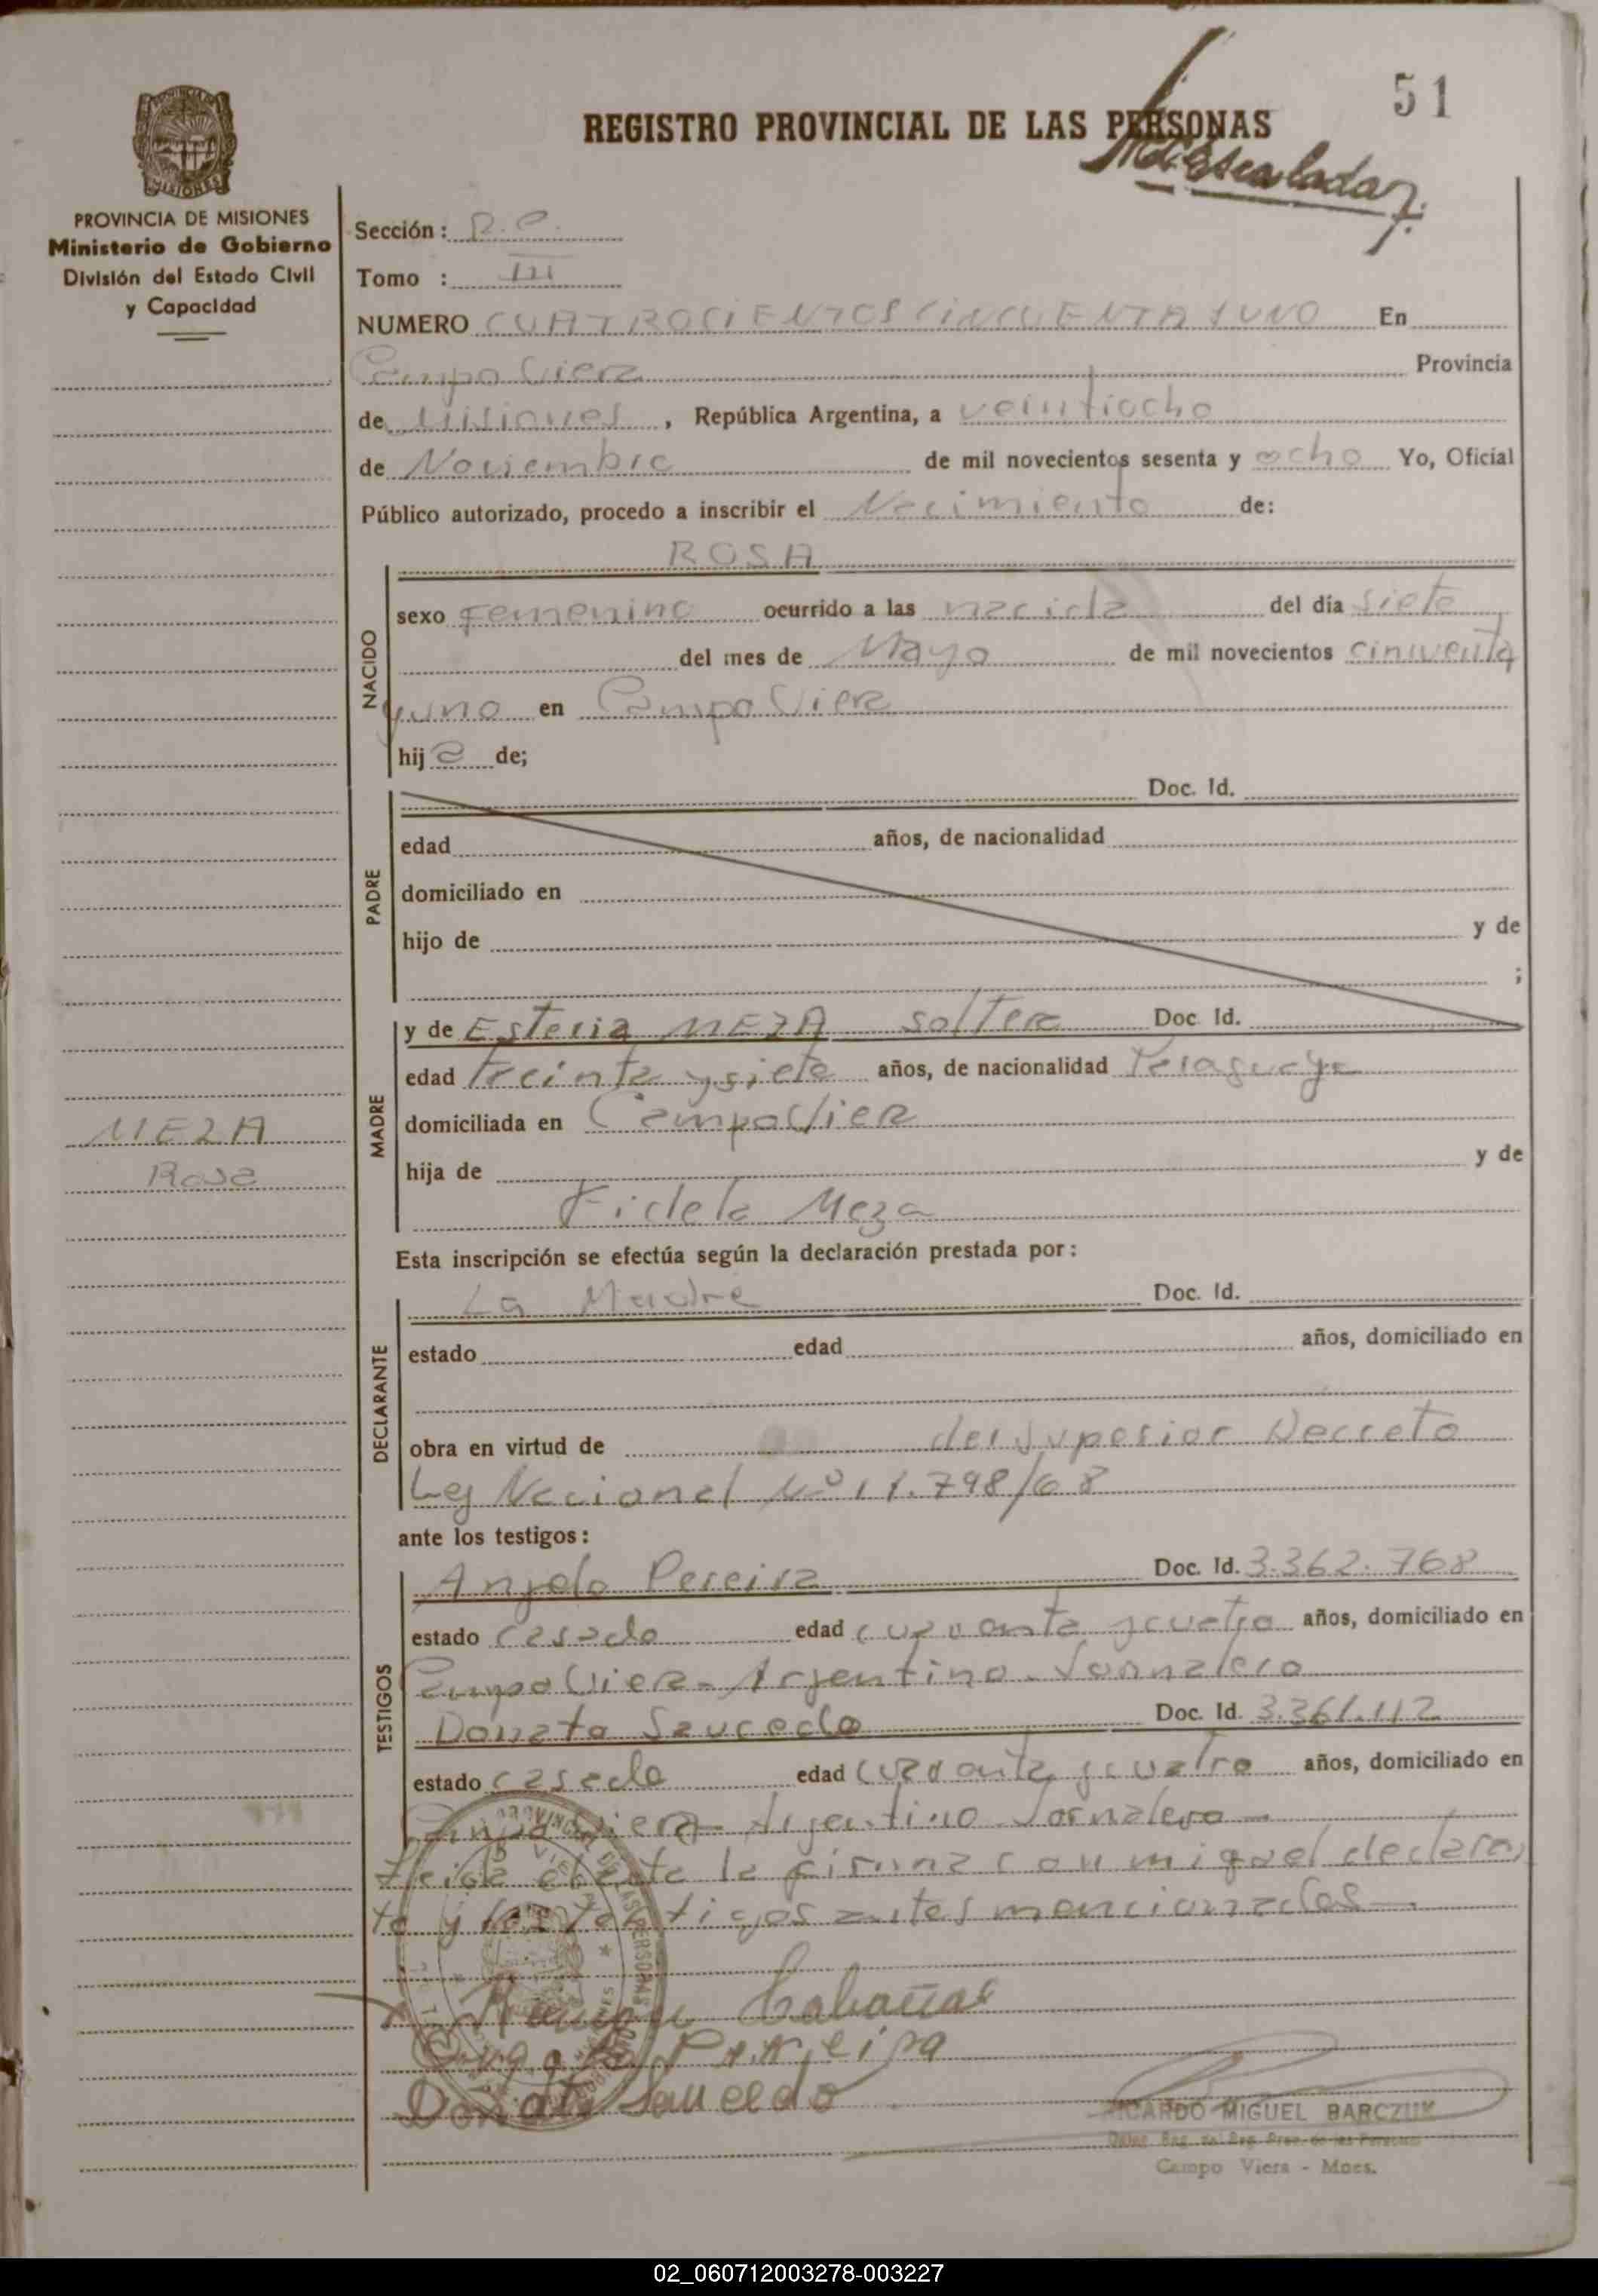 51
REGISTRO PROVINCIAL DE LAS PERSONAS
PROVINCIA DE MISIONES
Ministerio de Gobierno
División del Estado Civil
y Capacidad
Sección :
Tomo : III
NUMERO CUATROCIENTOS CINCUENTA Y UNO En
Campo Viera Provincia
de Misiones, República Argentina, a veintiocho
de Noviembre de mil novecientos sesenta y ocho Yo, Oficial
Público autorizado, procedo a inscribir el Nacimiento de:
NACIDO
ROSA
sexo Femenino ocurrido a las nacida del día siete
del mes de Mayo de mil novecientos cincuenta
y uno en Campo Viera
hija de;
PADRE
Doc. Id.
edad años, de nacionalidad
domiciliado en
hijo de y de
;
MADRE
y de Esteria MEZA soltera Doc. Id.
edad treinta y siete años, de nacionalidad Paraguaya
domiciliada en Campo Viera
hija de y de
Fidela Meza
MEZA
Rosa
Esta inscripción se efectúa según la declaración prestada por:
DECLARANTE
La Madre Doc. Id.
estado edad años, domiciliado en
obra en virtud de del Superior Decreto
Ley Nacional Nº 11.798/68
ante los testigos:
TESTIGOS
Angelo Pereira Doc. Id. 3.362.768
estado casado edad cuaranta y cuatro años, domiciliado en
Campo Viera - Argentino - Jornalero
Donato Saucedo Doc. Id. 3.361.112
estado casado edad cuaranta y cuatro años, domiciliado en
Campo Viera - Argentino Jornalero
Leida el acta la firma con migo el declaran
te y los testigos antes mencionados
Cabañas
Pereira
Donato Sauced o
RICARDO MIGUEL BARCZUK
Campo Viera - Mnes.
02_060712003278-003227